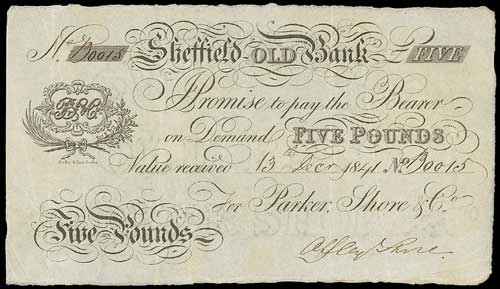 No. B0015 Sheffield OLD Bank £ FIVE
PS&Co
Promise to pay the Bearer
on Demand FIVE POUNDS
Value received 13th Decr 1841 No. B0015
For Parker, Shore & Co.
Five Pounds